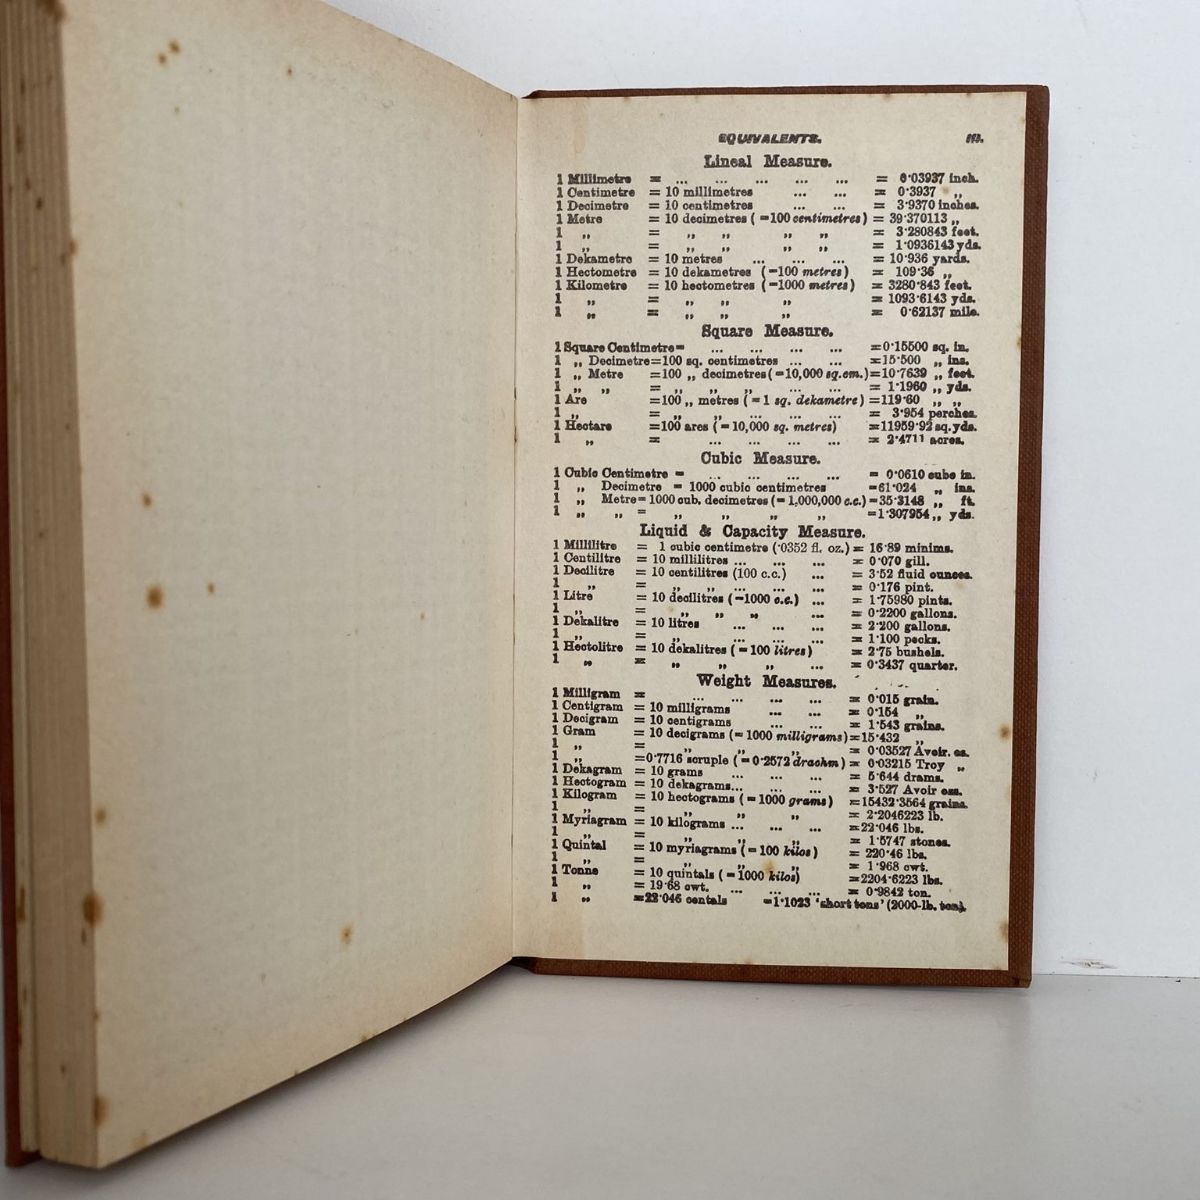 EQUIVALENTS. iii.
Lineal Measure.
1 Millimetre = ... ... ... ... ... = 0·03937 inch.
1 Centimetre = 10 millimetres ... ... = 0·3937 „
1 Decimetre = 10 centimetres ... ... = 3·9370 inches.
1 Metre = 10 decimetres (=100 centimetres) = 39·370113 „
1 „ = „ „ „ „ = 3·280843 feet.
1 „ = „ „ „ „ = 1·0936143 yds.
1 Dekametre = 10 metres ... ... ... = 10·936 yards.
1 Hectometre = 10 dekametres (=100 metres) = 109·36 „
1 Kilometre = 10 hectometres (=1000 metres) = 3280·843 feet.
1 „ = „ „ „ = 1093·6143 yds.
1 „ = „ „ „ = 0·62137 mile.
Square Measure.
1 Square Centimetre= ... ... ... ... =0·15500 sq. in.
1 „ Decimetre=100 sq. centimetres ... ... =15·500 „ ins.
1 „ Metre =100 „ decimetres(=10,000 sq.cm.)=10·7639 „ feet.
1 „ „ = „ „ „ ... ... = 1·1960 „ yds.
1 Are =100 „ metres (=1 sq. dekametre) =119·60 „ „
1 „ = „ „ ... ... ... = 3·954 perches.
1 Hectare =100 ares (=10,000 sq. metres) =11959·92 sq.yds.
1 „ = ... ... ... ... = 2·4711 acres.
Cubic Measure.
1 Cubic Centimetre = ... ... ... ... = 0·0610 cube in.
1 „ Decimetre = 1000 cubic centimetres =61·024 „ ins.
1 „ Metre= 1000 cub. decimetres (=1,000,000 c.c.)=35·3148 „ ft.
1 „ „ = „ „ „ „ =1·307954 „ yds.
Liquid & Capacity Measure.
1 Millilitre = 1 cubic centimetre (·0352 fl. oz.) = 16·89 minims.
1 Centilitre = 10 millilitres ... ... ... = 0·070 gill.
1 Decilitre = 10 centilitres (100 c.c.) ... = 3·52 fluid ounces.
1 „ = „ „ ... ... = 0·176 pint.
1 Litre = 10 decilitres (=1000 c.c.) ... = 1·75980 pints.
1 „ = „ „ „ ... = 0·2200 gallons.
1 Dekalitre = 10 litres ... ... ... = 2·200 gallons.
1 „ = „ ... ... ... = 1·100 pecks.
1 Hectolitre = 10 dekalitres (=100 litres) = 2·75 bushels.
1 „ = „ „ „ ... = 0·3437 quarter.
Weight Measures.
1 Milligram = ... ... ... ... = 0·015 grain.
1 Centigram = 10 milligrams ... ... = 0·154 „
1 Decigram = 10 centigrams ... ... = 1·543 grains.
1 Gram = 10 decigrams (=1000 milligrams)=15·432 „
1 „ = „ „ „ = 0·03527 Avoir. oz.
1 „ =0·7716 scruple (=0·2572 drachm) = 0·03215 Troy „
1 Dekagram = 10 grams ... ... ... = 5·644 drams.
1 Hectogram = 10 dekagrams... ... ... = 3·527 Avoir ozs.
1 Kilogram = 10 hectograms (=1000 grams) =15432·3564 grains.
1 „ = „ „ „ = 2·2046223 lb.
1 Myriagram = 10 kilograms ... ... ... =22·046 lbs.
1 „ = „ „ „ = 1·5747 stones.
1 Quintal = 10 myriagrams (=100 kilos) = 220·46 lbs.
1 „ = „ „ „ = 1·968 cwt.
1 Tonne = 10 quintals (=1000 kilos) =2204·6223 lbs.
1 „ = 19·68 cwt. ... ... ... = 0·9842 ton.
1 „ =22·046 centals =1·1023 ‘short tons’ (2000-lb. ton).